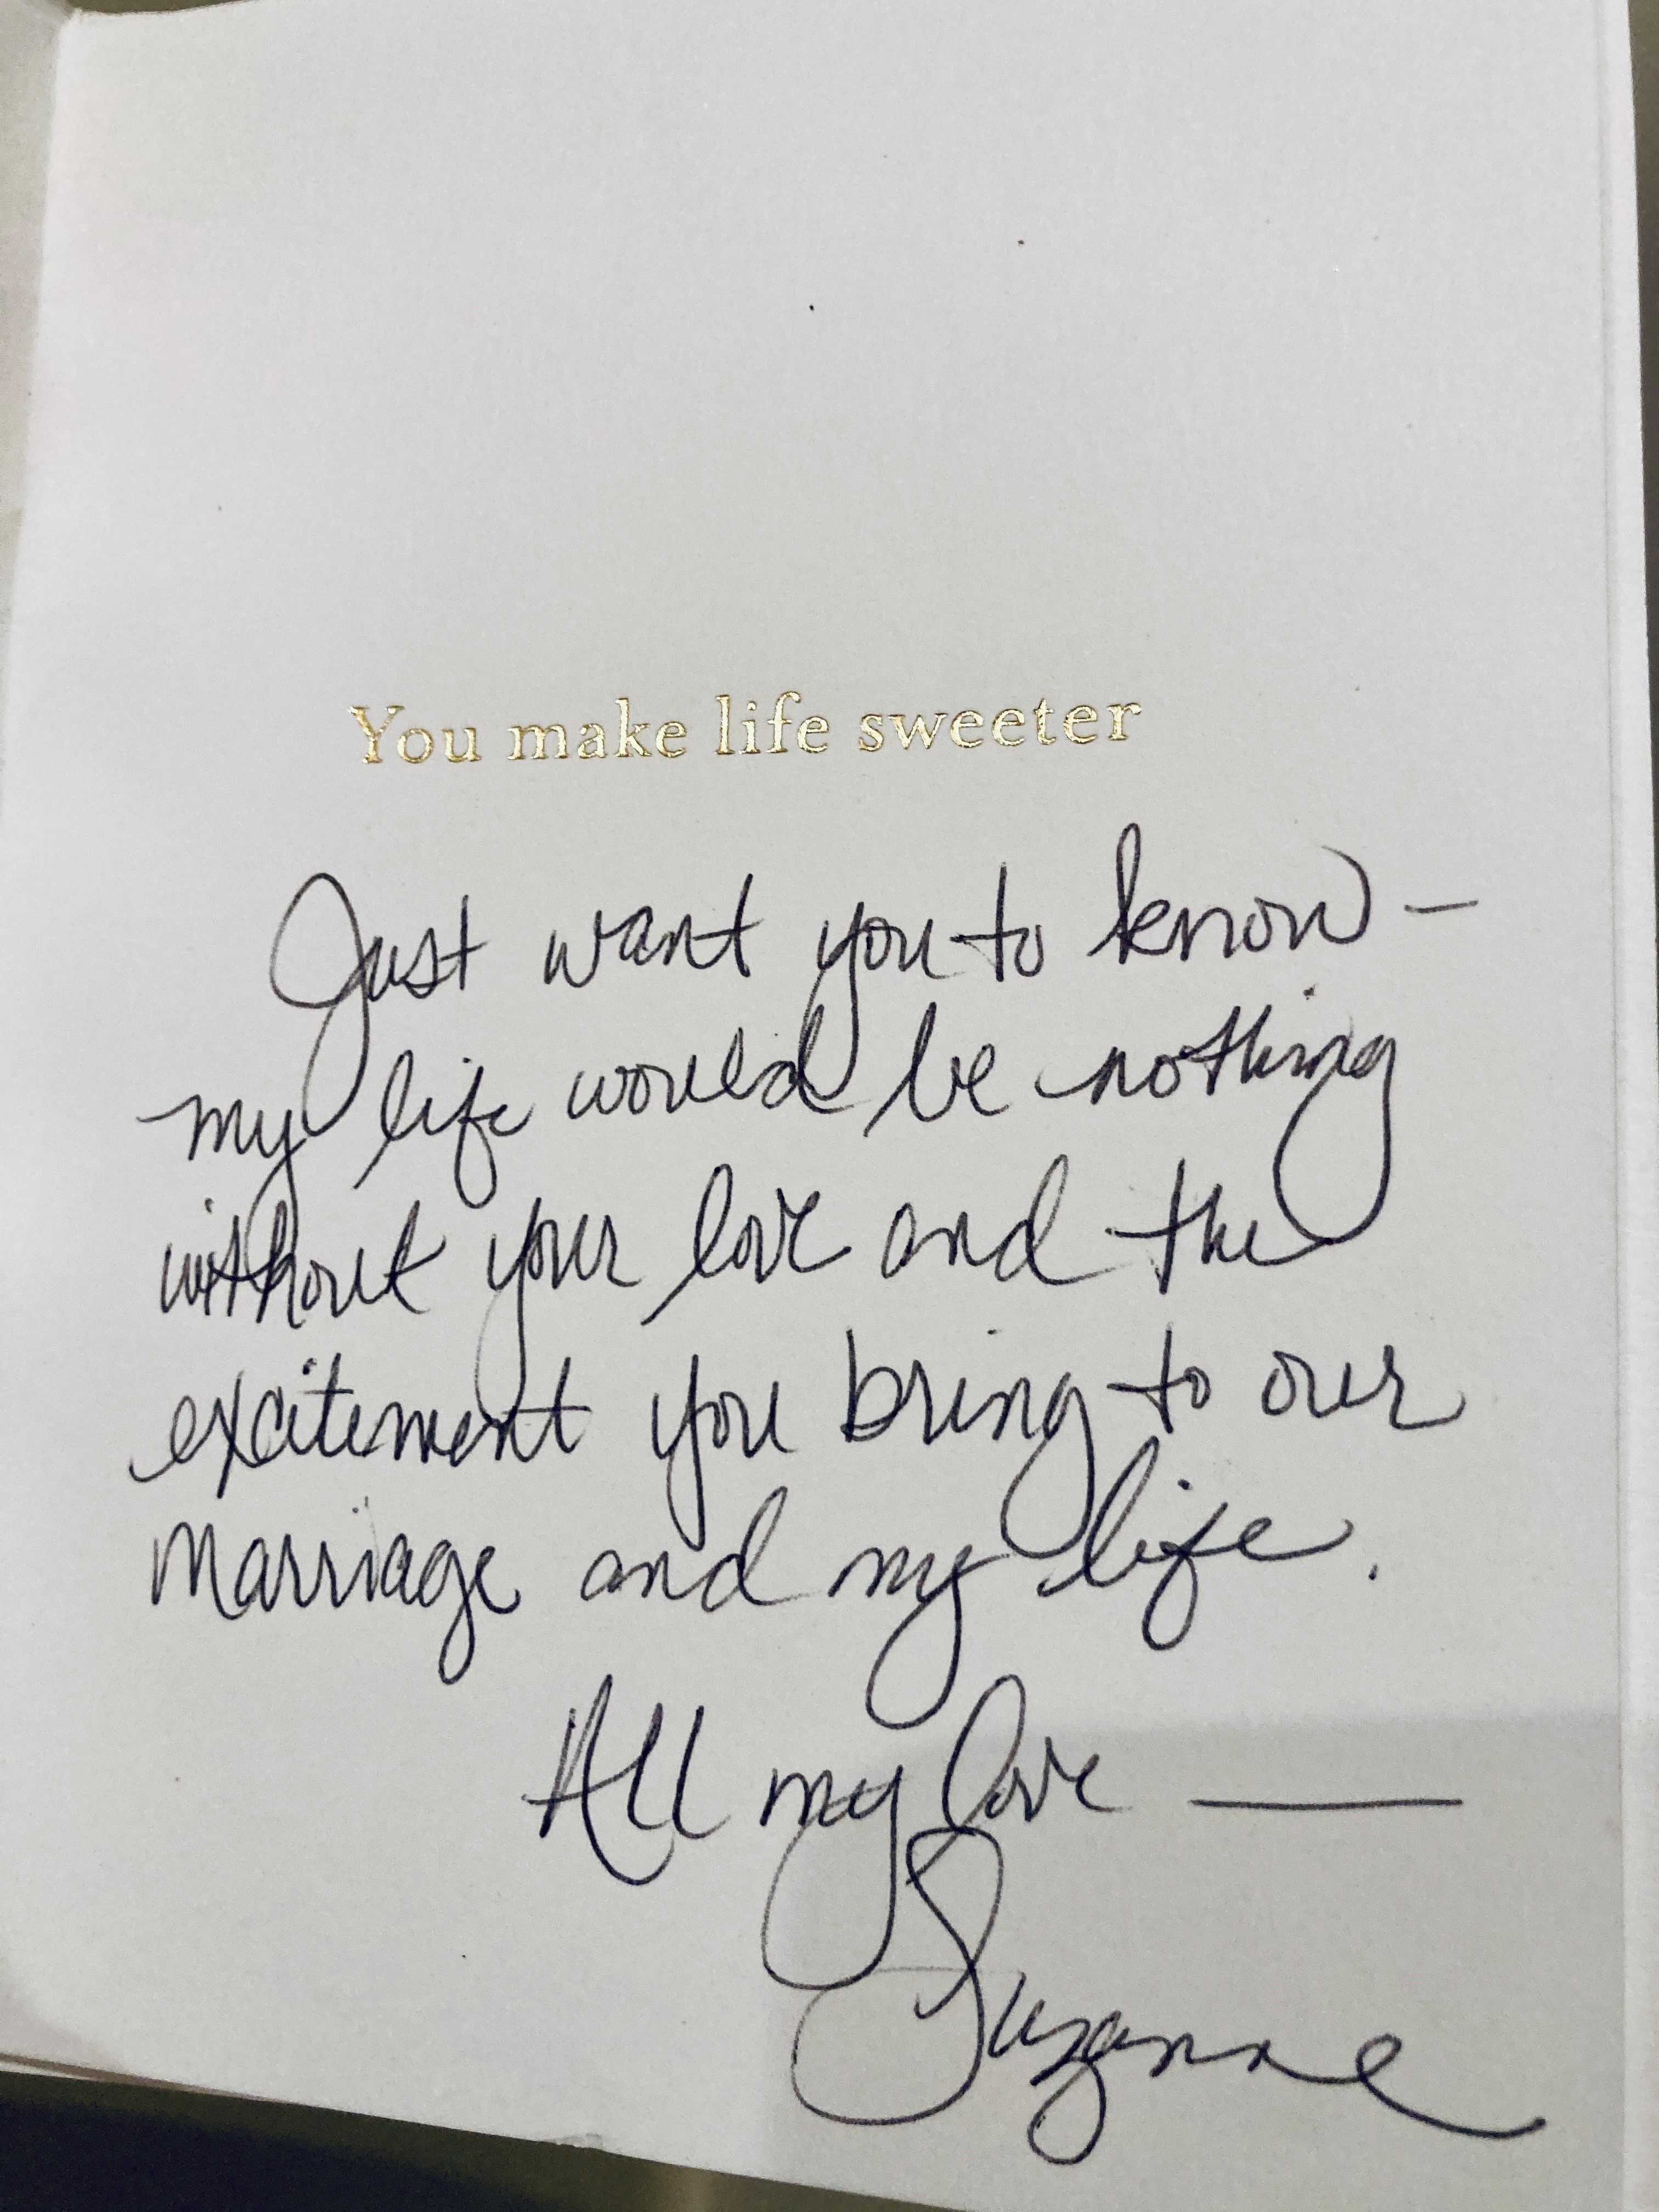 You make life sweeter
Just want you to know –
my life would be nothing
without your love and the
excitement you bring to our
marriage and my life.
All my love —
Suzanne